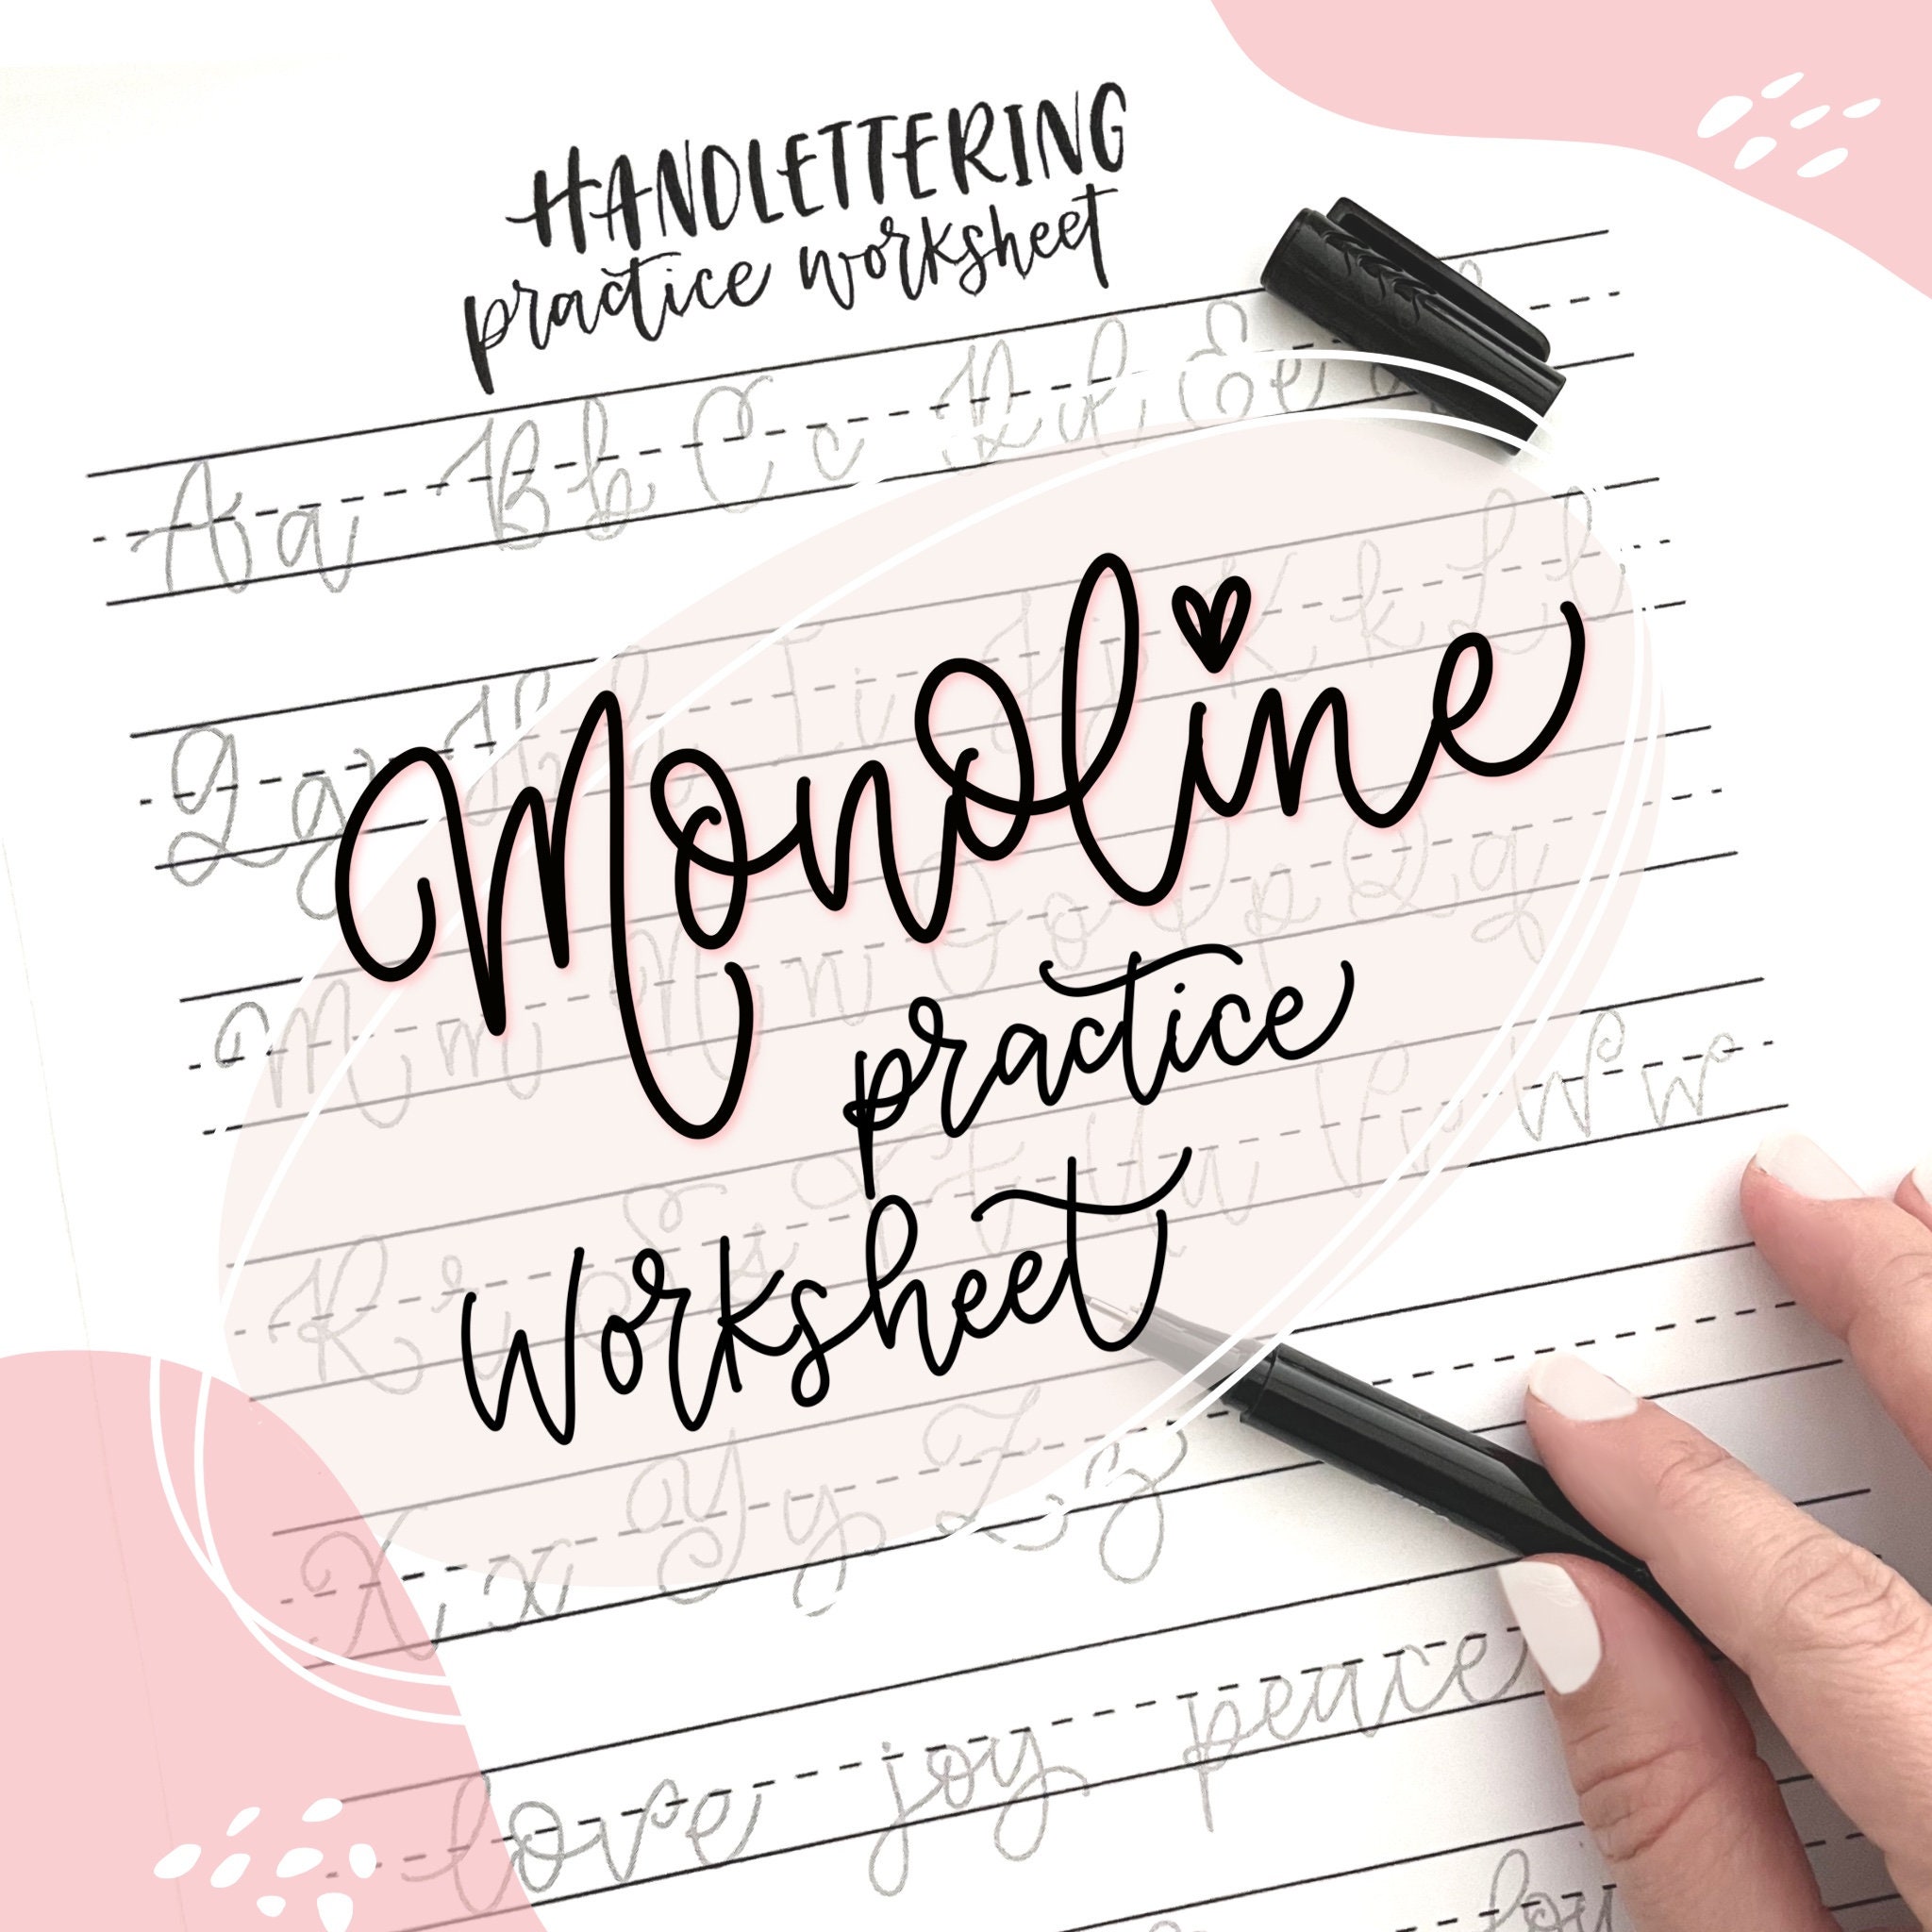 HANDLETTERING
practice worksheet
Aa Bb Cc Dd Ee
Gg Hh Ii Jj Kk Ll
Mm Nn Oo Pp Qq
Rr Ss Tt Uu Vv Ww
Xx Yy Zz
love joy peace
Monoline
practice
worksheet